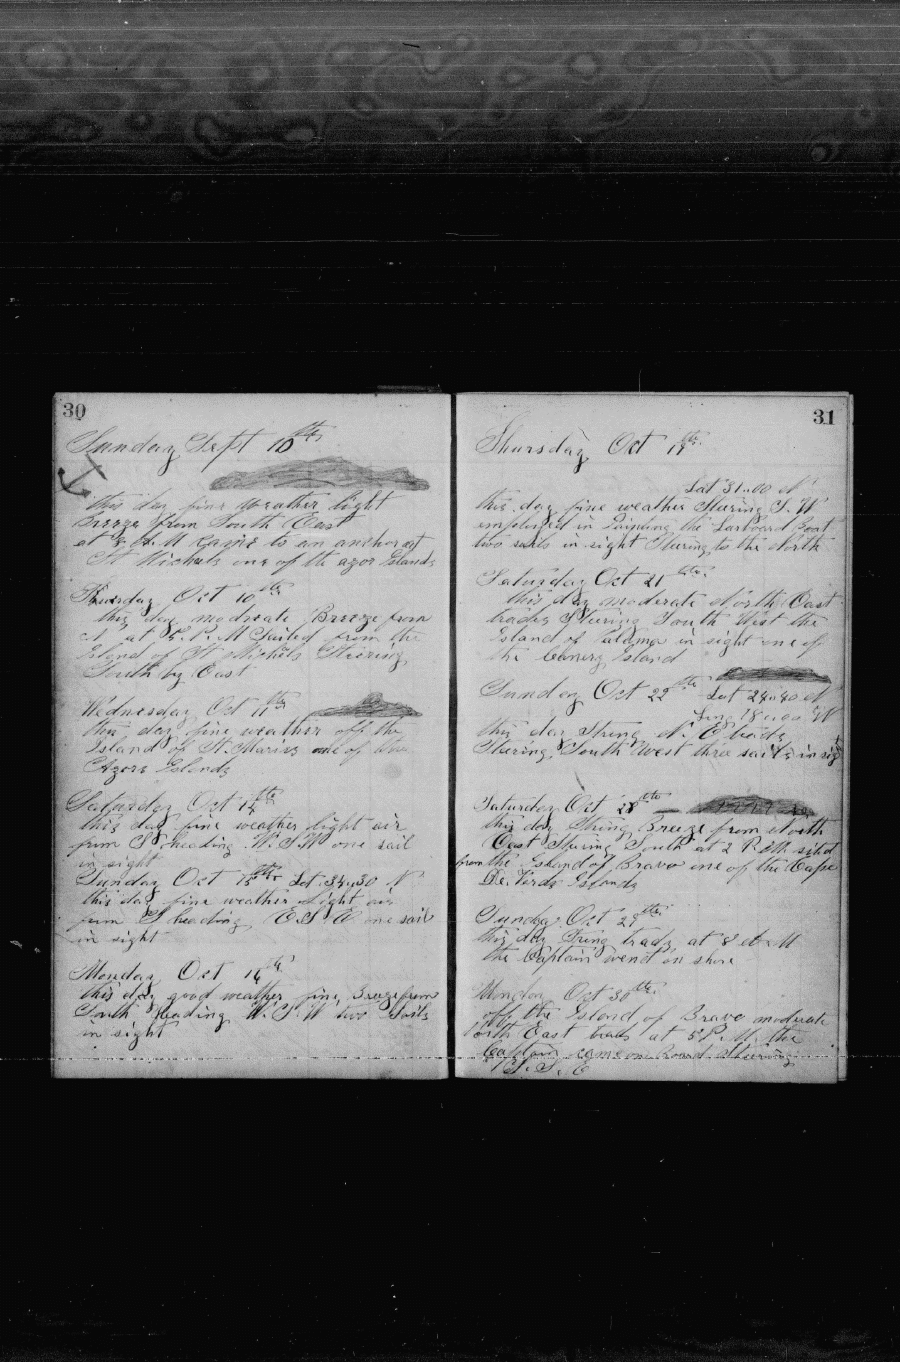 30
Sunday Sept 10th
this day fine weather light
Breeze from South East
at 8 A. M came to an anchor at
St Michels one of the azor Islands
Thursday Oct 10th
this day modrate Breeze from
at 5. P. M Sailed from the
Island of St Michels Stering
South by East
Wednesday Oct 11th
this day fine weather off the
Island of St. Maries one of the
Azors Islands
Saturday Oct 14th
this day fine weather light air
from S heading W. S W one sail
in sight
Sunday Oct 15th Lat 34..30 N
this day fine weather light air
from S heading E. S. E one sail
in sight
Monday Oct 16th
this day good weather fine Breeze from
South heading W. S. W two Sails
in sight
31
Thursday Oct 19th
Lat 31..00 N
this day fine weather Stering S. W
employed in Painting the Larboard Boat
two sails in sight Stering to the North
Saturday Oct 21th
this day moderate North East
trades Stering South West the
Island of Palama in sight one of
the Canery Island
Sunday Oct 22th Lat 24..40 N
Long 18 W
this day Strong N. E trades
Stering South West three sails in sigt
Saturday Oct 28th
this day Strong Breeze from North
East Stering South at 2 P. M
from the Island of Bravo one of the Cape
De. Verds Islands
Sunday Oct 29th
this day Strong trads at 8 A. M
the Captain wend on shore
Monday Oct 30th
off the Island of Bravo moderate
orth East trads at 5 P. M. the
Captain came on Board stering
S. S. E